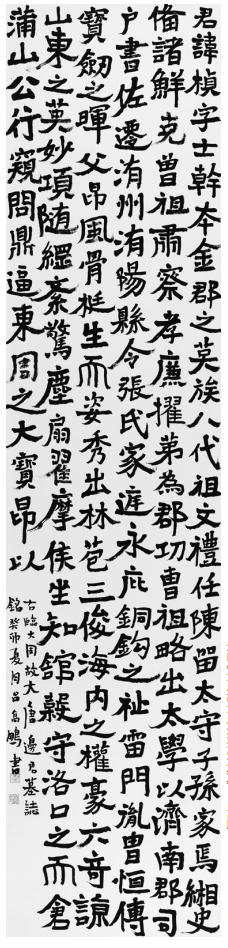 君諱楨字士幹本金郡之莫族八代祖文禮任陳留太守子孫家焉緗史
備諸鮮克曾祖肅察孝廉擢弟為郡功曹祖略出太學以濟南郡司
户書佐遷洧州洧陽縣令張氏家庭永庇銅鈎之祉雷門胤胄恒傳
寶劒之暉父昂風骨挺生而姿秀出林苞三俊海内之權豪六奇諒
山東之英妙項随綱紊驚塵扇翟摩侯坐知館穀守洛口之而倉
蒲山公行窺問鼎逼東周之大寶昂以
右臨大周故大邊君墓誌
銘癸卯夏月吕高鵬書